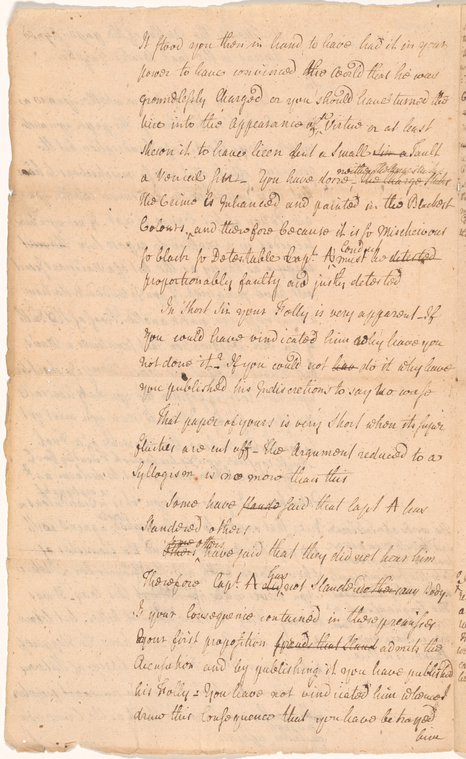 It stood you then in hand to have had it in your
power to have convinced the world that he was
groundlessly Charged or you should have turned the
vice into the Appearance of Virtue or at least
shewn it to have been but a small Sin a Fault
a Venical Sin - You have done
the Charge
the Crime is Enhanced and painted in the Blackest
Colours, and therefore because it is so Mischievous
so black so Detestable Capt. A must be detected
proportionably faulty and justly detested
In Short Sir your Folly is very apparent - If
you could have vindicated him why have you
not done it? If you could not do it why have
you published his Indiscretions to say no worse
That paper of yours is very Short when its super
fluities are cut off - The Argument reduced to a
Syllogism is no more than this
Some have said that Capt A has
Slandered others
some others
others have said that they did not hear him
Therefore Capt A has not Slandered any Body
Is your Consequence contained in these premises
your first proposition admits the
Accusation and by publishing it you have published
his Folly - You have not vindicated him
draw this Consequence that you have betrayed